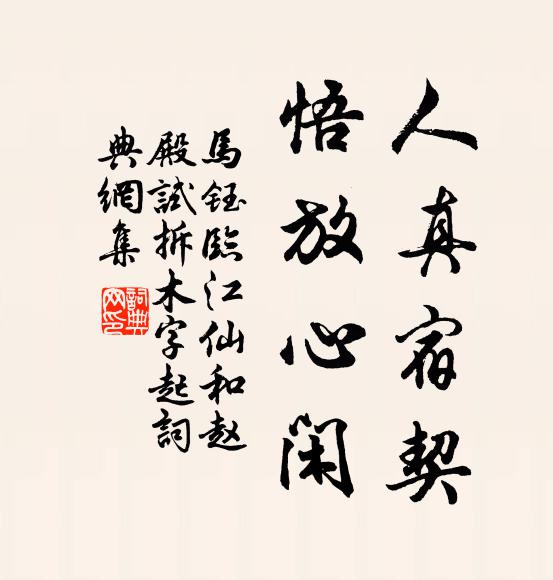 人真宿契
悟放心闲
馬鈺臨江仙和赵
殿試拆木字起詞
典網集
詞典
网印